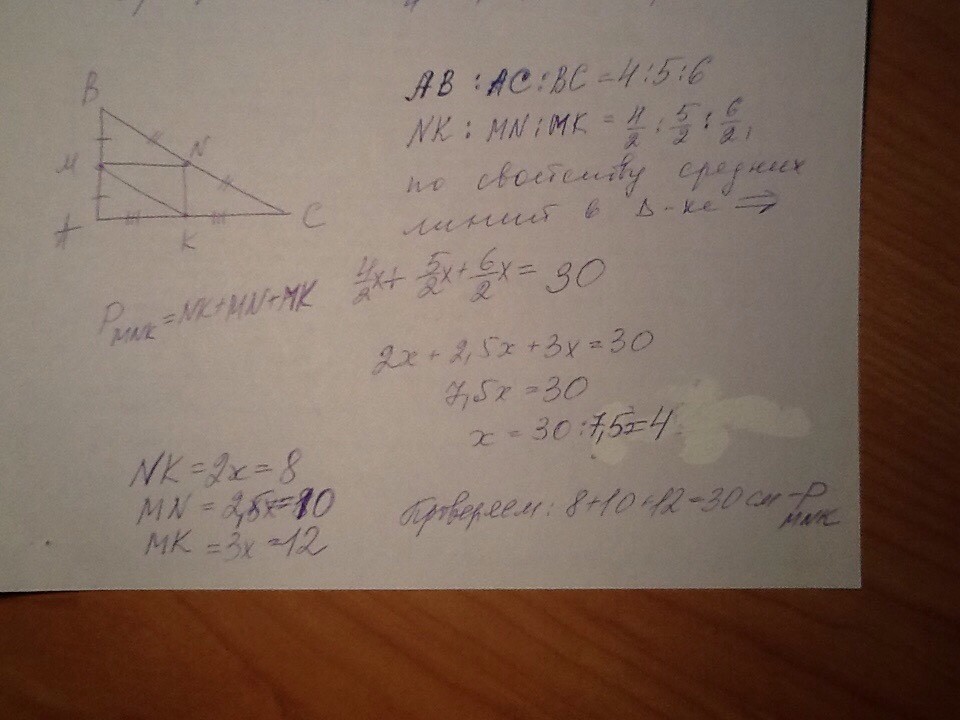 AB : AC : BC = 4 : 5 : 6
NK : MN : MK = 4/2 : 5/2 : 6/2,
по свойству средних
линий в Δ-ке ⇒
B
M
N
A
K
C
P MNK = NK+MN+MK
4/2x + 5/2x + 6/2x = 30
2x + 2,5x + 3x = 30
7,5x = 30
x = 30 : 7,5 = 4
NK = 2x = 8
MN = 2,5x = 10
MK = 3x = 12
Проверяем: 8+10+12=30 см - P MNK